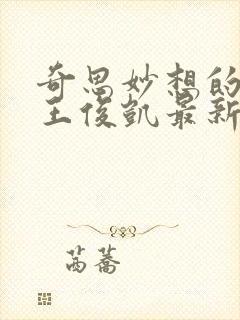 奇思妙想的
王俊凯最新
茼蒿